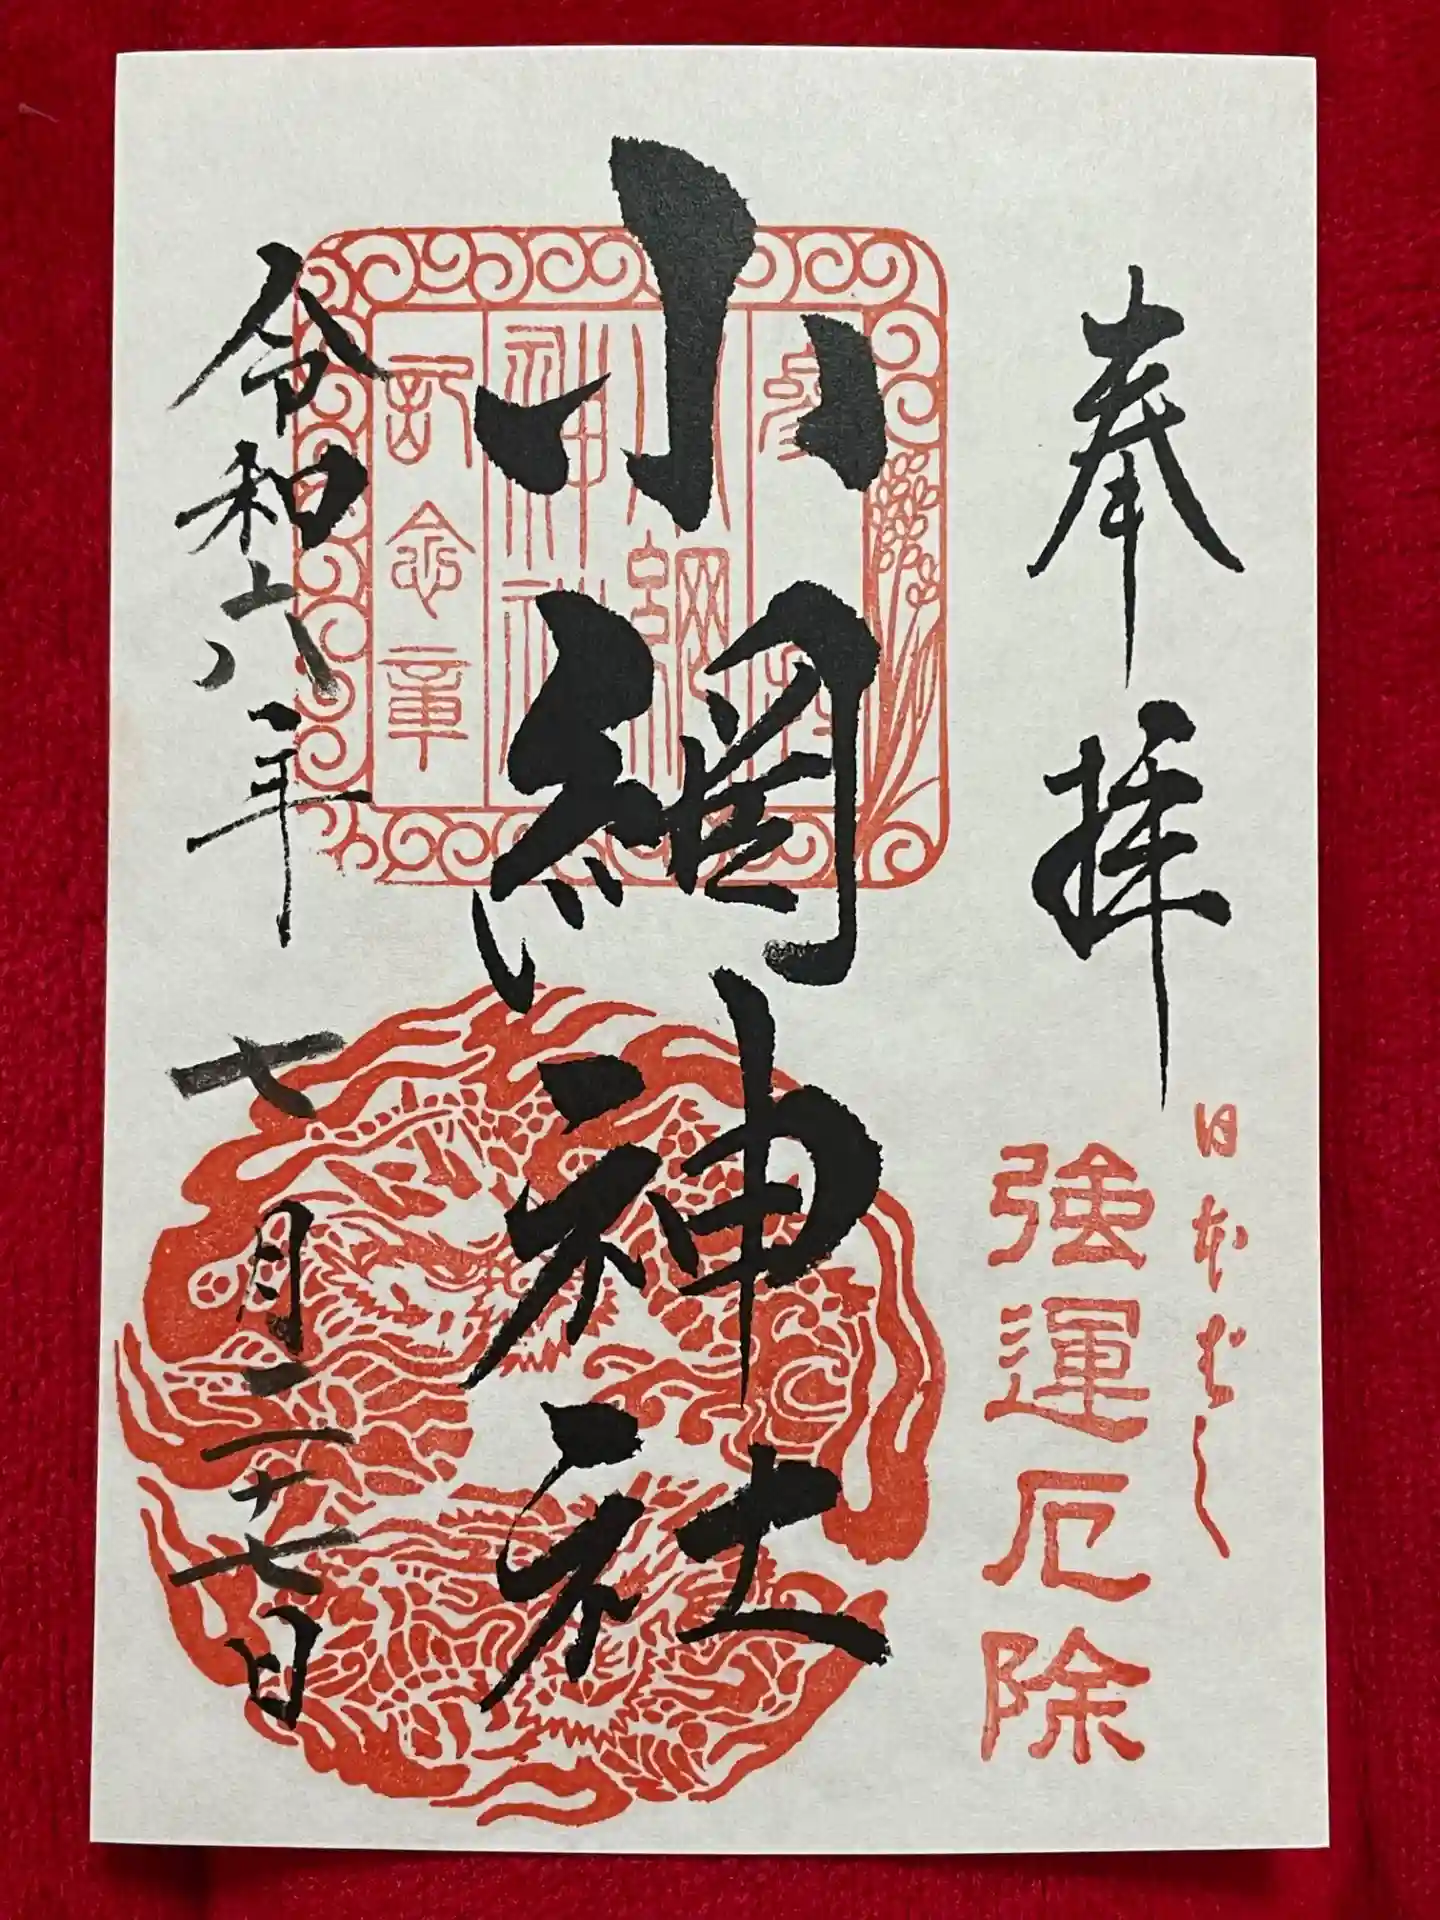 奉拝
日本ばし
強運厄除
小網神社
参拝
小網
神社
記念章
令和六年
七月二十七日